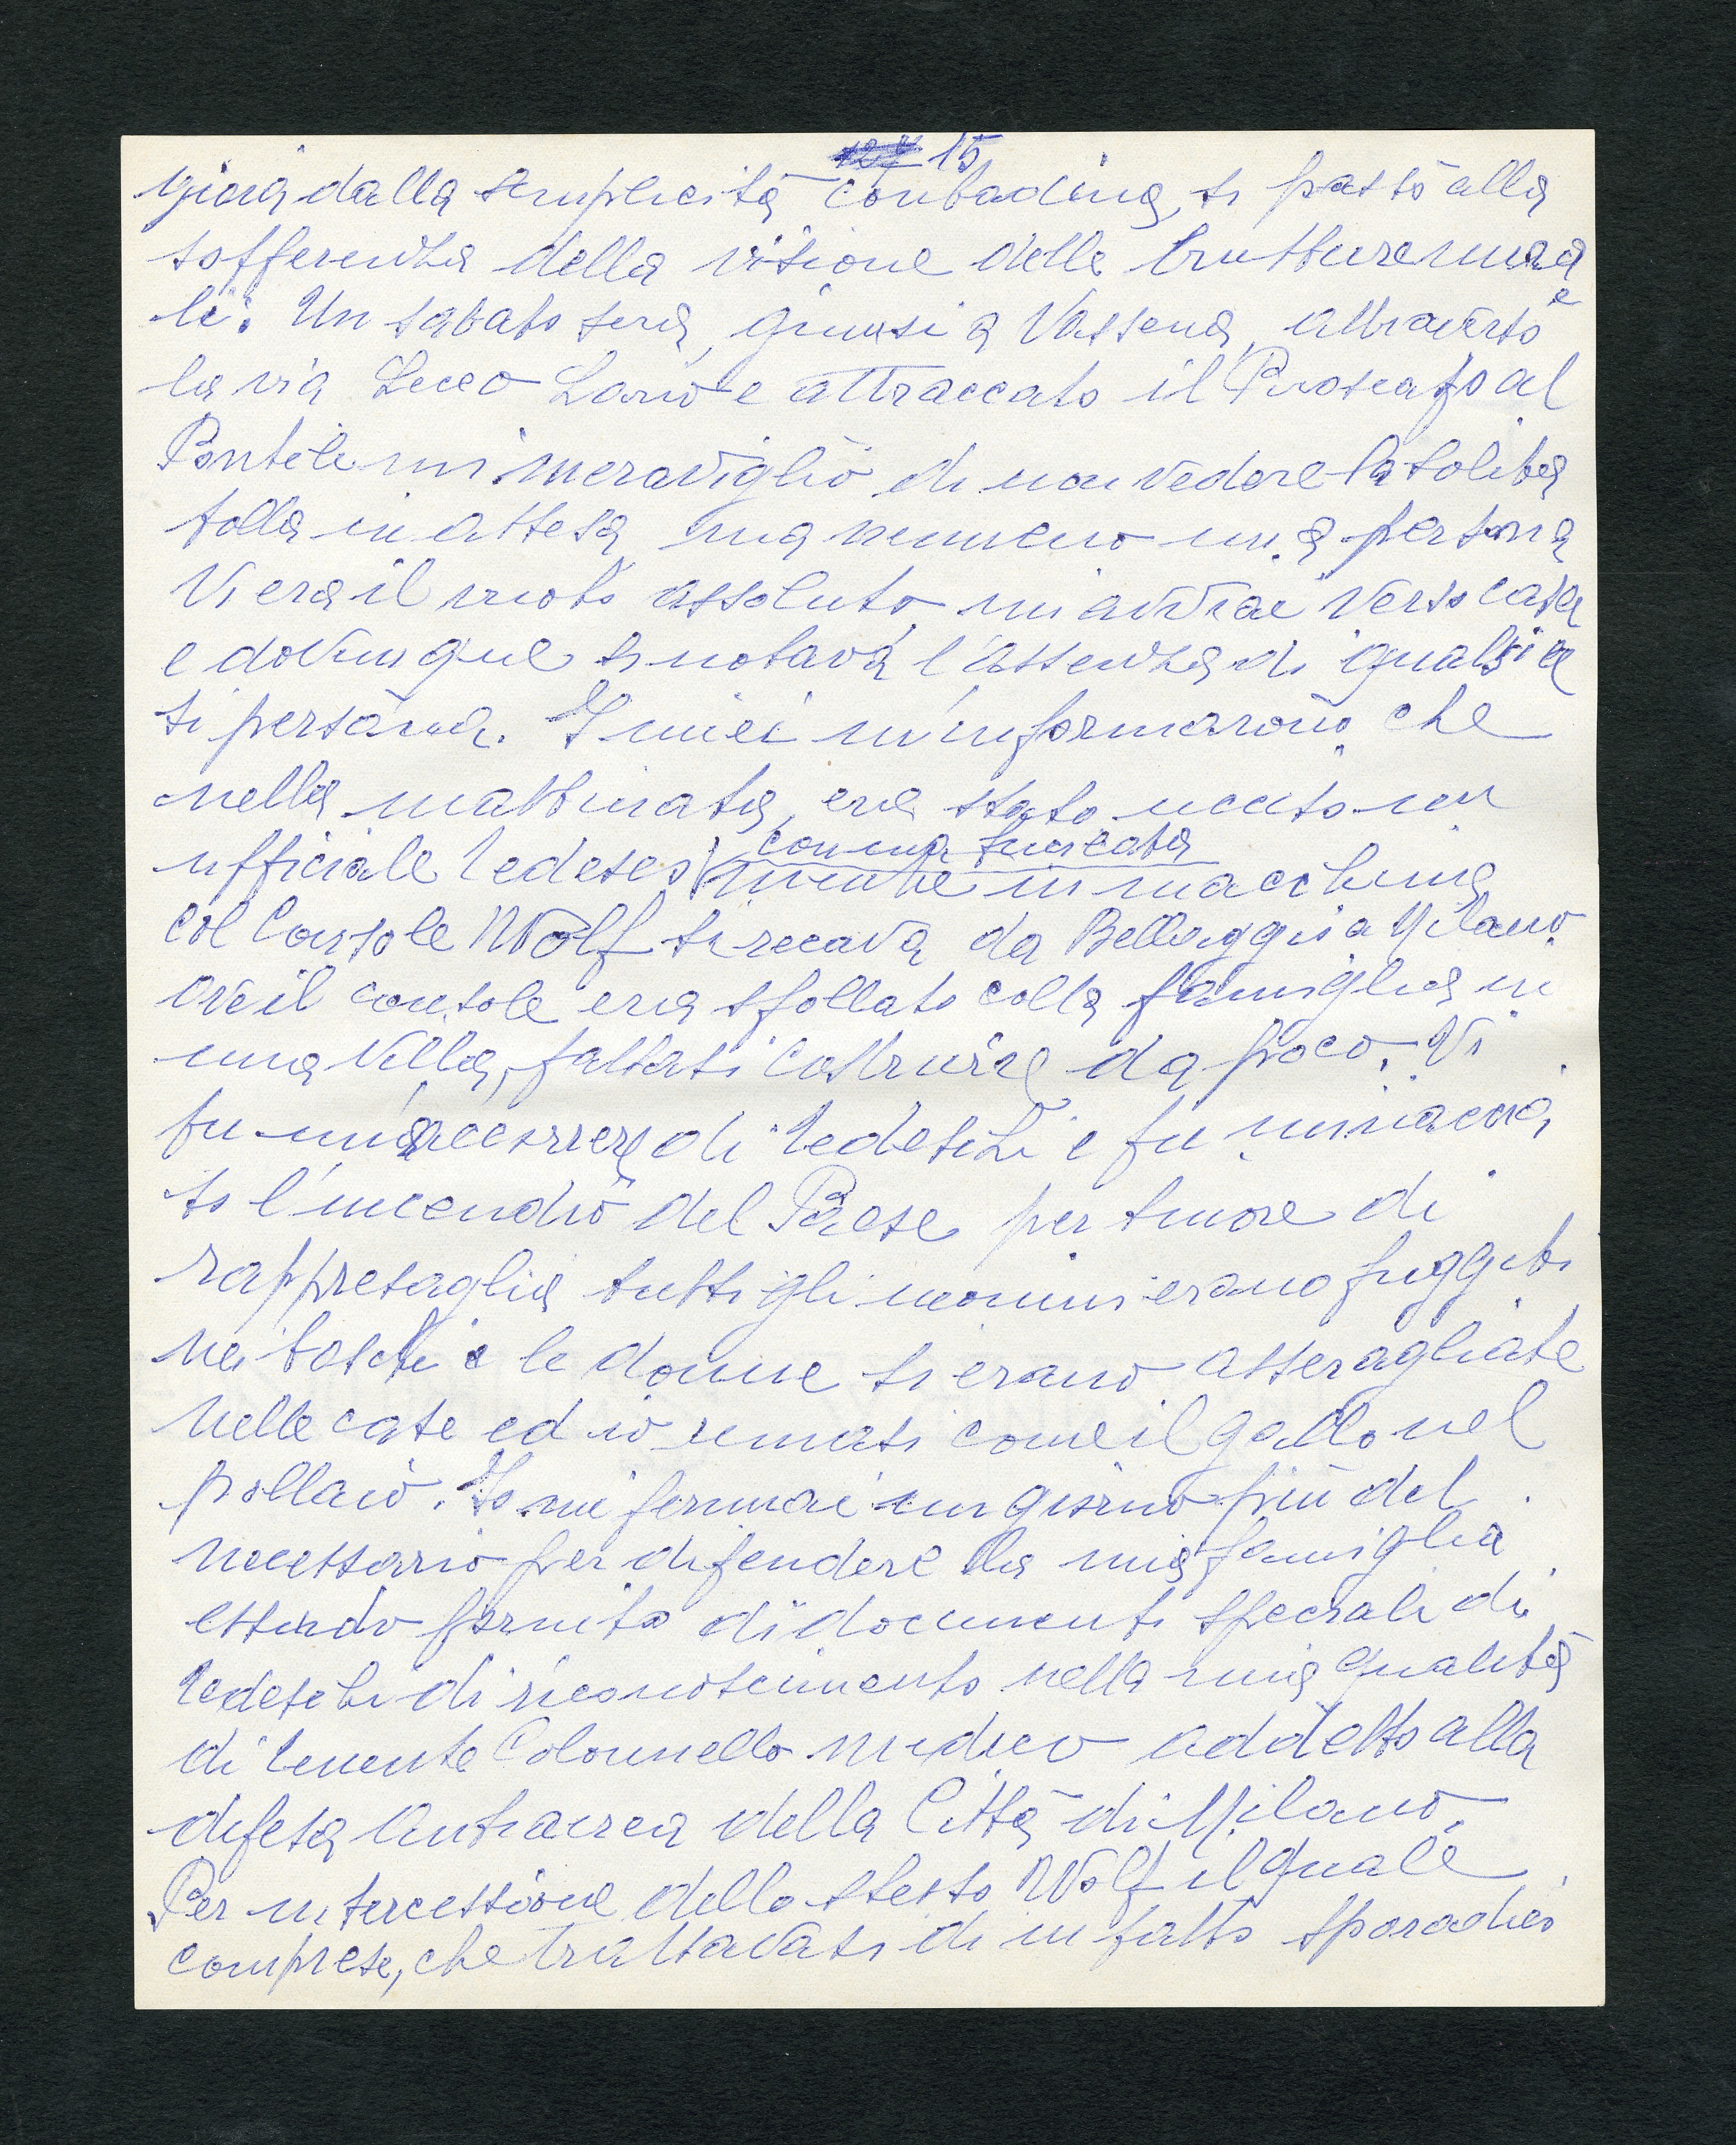 15
gioia dalla semplicità contadina, si passò alla
sofferenza della visione delle brutture
li. Un sabato sera, giunsi a Vassena, attraverso
la via Lecco Lario e attraccato il Piroscafo al
Pontile mi meravigliò di non vedere la solita
folla in attesa ma nemmeno una persona
Vi era il vuoto assoluto mi avviai verso casa
e dovunque si notava l'assenza di qualsia
si persona. I miei m'informarono che
nella mattinata, era stato ucciso un
con una fucilata
ufficiale tedesco mentre in macchina
col Console Wolf si recava da Bellaggio a Milano
ove il console era sfollato colla famiglia in
una Villa, fattasi costruire da poco. Vi
fu un accorrere di tedeschi e fu minaccia
to l'incendio del Paese per timore di
rappresaglia tutti gli uomini erano fuggiti
nei boschi e le donne si erano asseragliate
nelle case ed io rimasi come il gallo nel
pollaio. Io mi fermai un giorno più del
necessario per difendere la mia famiglia
essendo fornito di documenti speciali di
tedeschi di riconoscimento nella mia qualità
di tenente Colonnello medico addetto alla
difesa Antiaerea della Città di Milano.
Per intercessione dello stesso Wolf il quale
comprese, che trattavasi di un fatto sporadico